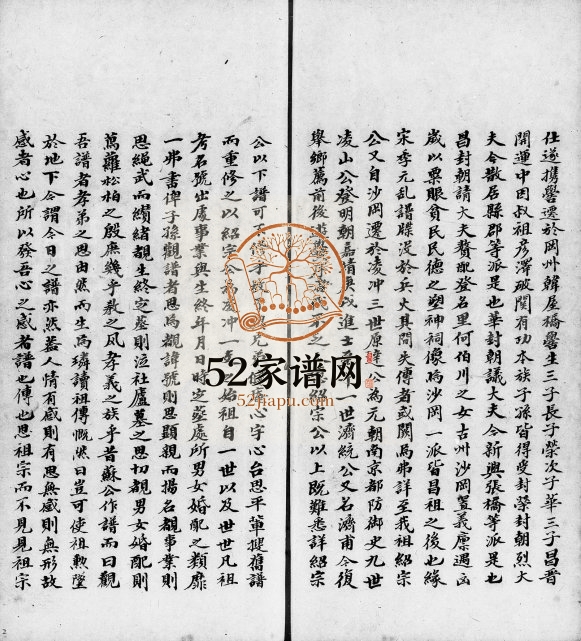 仕遂携譽遷於岡州韓屋橋譽生三子長子榮次子華三子昌晋
開運中因叔祖彥澤破関有功本族子孫皆得受封榮封朝烈大
夫今散居縣郡等派是也華封朝議大夫今新興張橋等派是也
昌封朝請大夫贅配登名里何伯川之女古州沙岡置義廪遇凶
歲以粟賑貧民民德之塑神祠像為沙岡一派皆昌祖之後也緣
宋季元乱譜牒没於兵火其間失傳者或闕為弗詳至我紹宗
公又自沙岡遷於凌冲三世原達公為元朝南京都防御史九世
凌山公登明朝嘉靖庚戍進士一世濟統公又名濟甫今復
舉鄉薦前後之紹宗公以上既難悉詳紹宗
公以下譜可不修乎兄弟心字心台思平軰搜舊譜
而重修之以紹宗公凌冲一世始祖自一世以及世世凡祖
考名號出處事業與生終年月日時定塟處所男女婚配之類靡
一弗書俾子孫觀譜者思為觀諱號則思顯親而揚名覩事業則
思繩武而纘緒覩生終定塟則泣社廬墓之思切覩男女婚配則
萬蘿松柏之殷庶幾乎敦之風孝義之族乎昔蘇公作譜而曰觀
吾譜者孝弟之思由然而生為璘讀祖傳慨然曰豈可使祖勲墜
於地下今謂今日之譜亦然葢人情有感則有思無感則無形故
感者心也所以發吾心之感者譜也傳也思祖宗而不見見祖宗
52家谱网
52jiapu.com
2